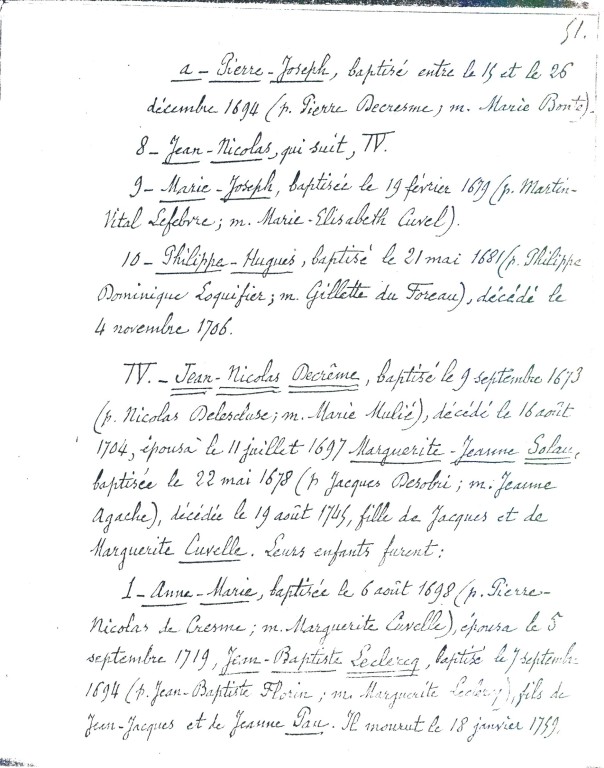 51.
a - Pierre-Joseph, baptisé entre le 15 et le 26
décembre 1694 (p. Pierre Decresme; m. Marie Bonte).
8 - Jean-Nicolas, qui suit, IV.
9 - Marie-Joseph, baptisée le 19 février 1679 (p. Martin-
Vital Lefebvre; m. Marie-Elisabeth Cuvel).
10 - Philippe-Hugues, baptisé le 21 mai 1681 (p. Philippe
Dominique Loquifier; m. Gillette du Foreau), décédé le
4 novembre 1706.
IV. - Jean-Nicolas Decrême, baptisé le 9 septembre 1673
(p. Nicolas Delescluse; m. Marie Mulié), décédé le 16 août
1704, épousa le 11 juillet 1697 Marguerite-Jeanne Solau,
baptisée le 22 mai 1678 (p Jacques Desobri; m. Jeanne
Agache), décédée le 19 août 1745, fille de Jacques et de
Marguerite Cuvelle. Leurs enfants furent:
1 - Anne-Marie, baptisée le 6 août 1698 (p. Pierre-
Nicolas de Cresme; m. Marguerite Cuvelle), épousa le 5
septembre 1719, Jean-Baptiste Leclercq, baptisé le 7 septembre
1694 (p. Jean-Baptiste Florin; m. Marguerite Leclercq), fils de
Jean-Jacques et de Jeanne Pau. Il mourut le 18 janvier 1759,